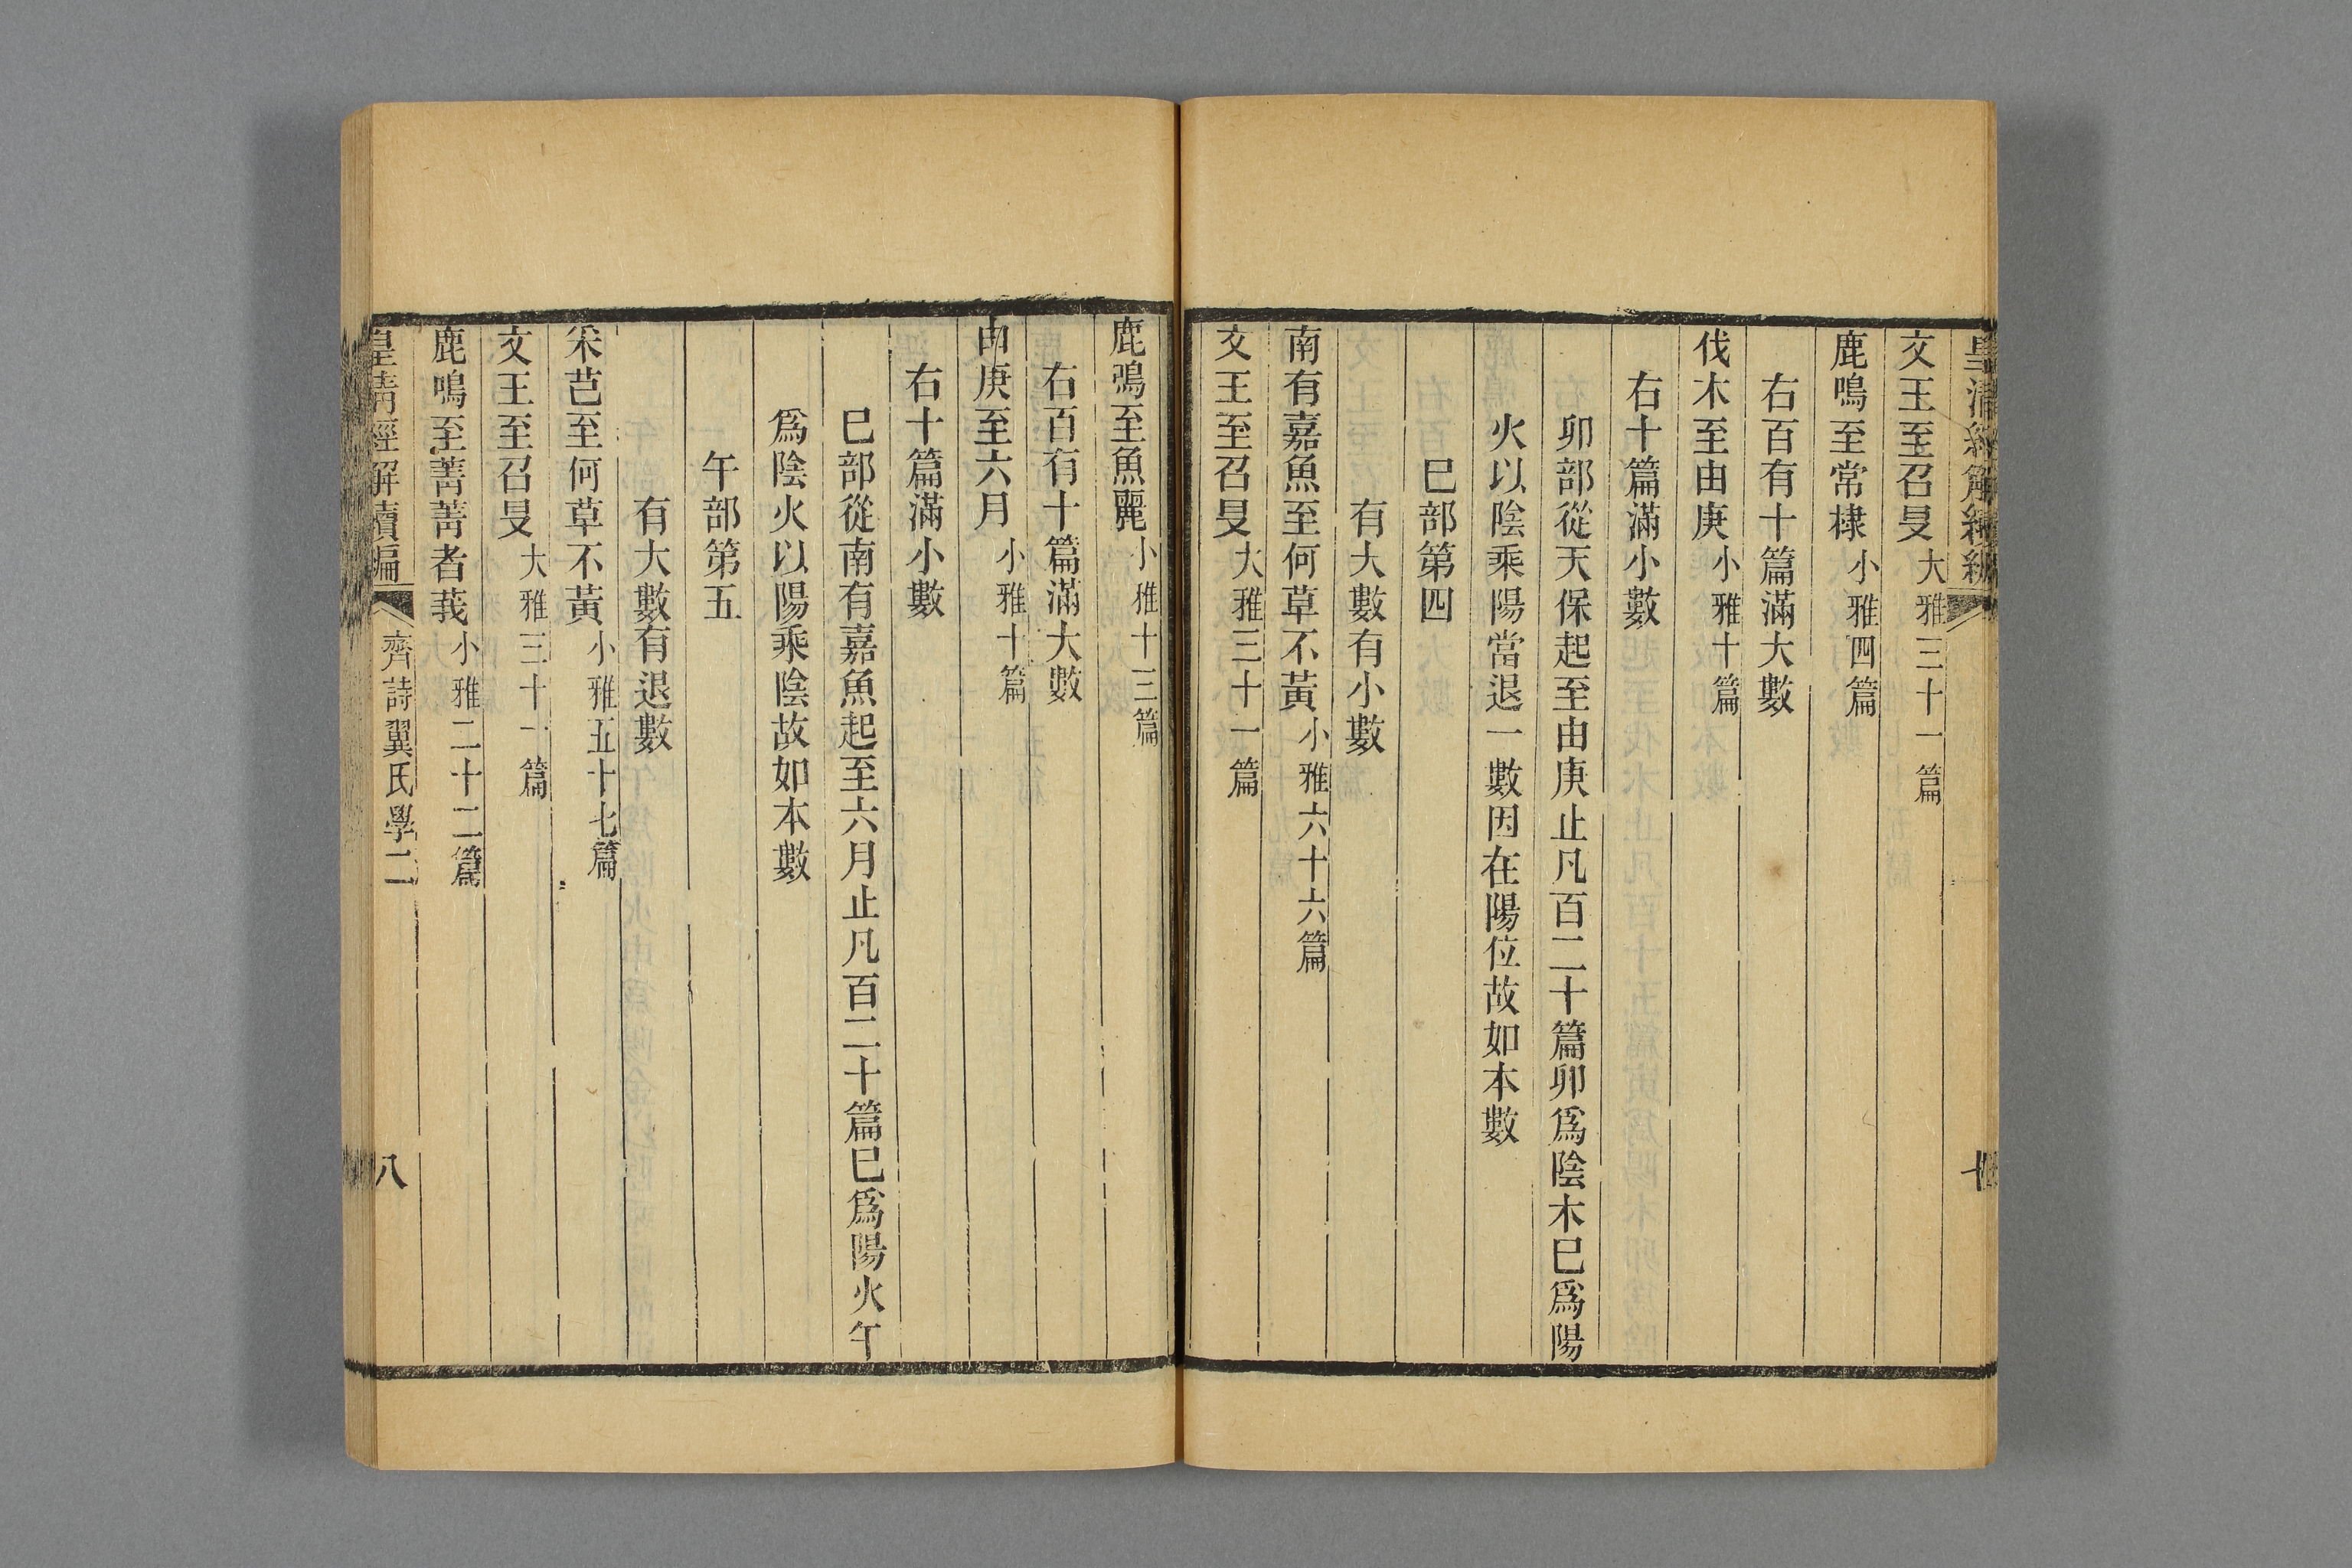 皇清經解續編
文王至召旻大雅三十一篇
鹿鳴至常棣小雅四篇
右百有十篇滿大數
伐木至由庚小雅十篇
右十篇滿小數
卯部從天保起至由庚止凡百二十篇卯爲陰木巳爲陽
火以陰乘陽當退一數因在陽位故如本數
巳部第四
有大數有小數
南有嘉魚至何草不黃小雅六十六篇
文王至召旻大雅三十一篇
鹿鳴至魚麗小雅十三篇
右百有十篇滿大數
由庚至六月小雅十篇
右十篇滿小數
巳部從南有嘉魚起至六月止凡百二十篇巳爲陽火午
爲陰火以陽乘陰故如本數
午部第五
有大數有退數
采芑至何草不黃小雅五十七篇
文王至召旻大雅三十一篇
鹿鳴至菁菁者莪小雅二十二篇
皇清經解續編 齊詩翼氏學二 八